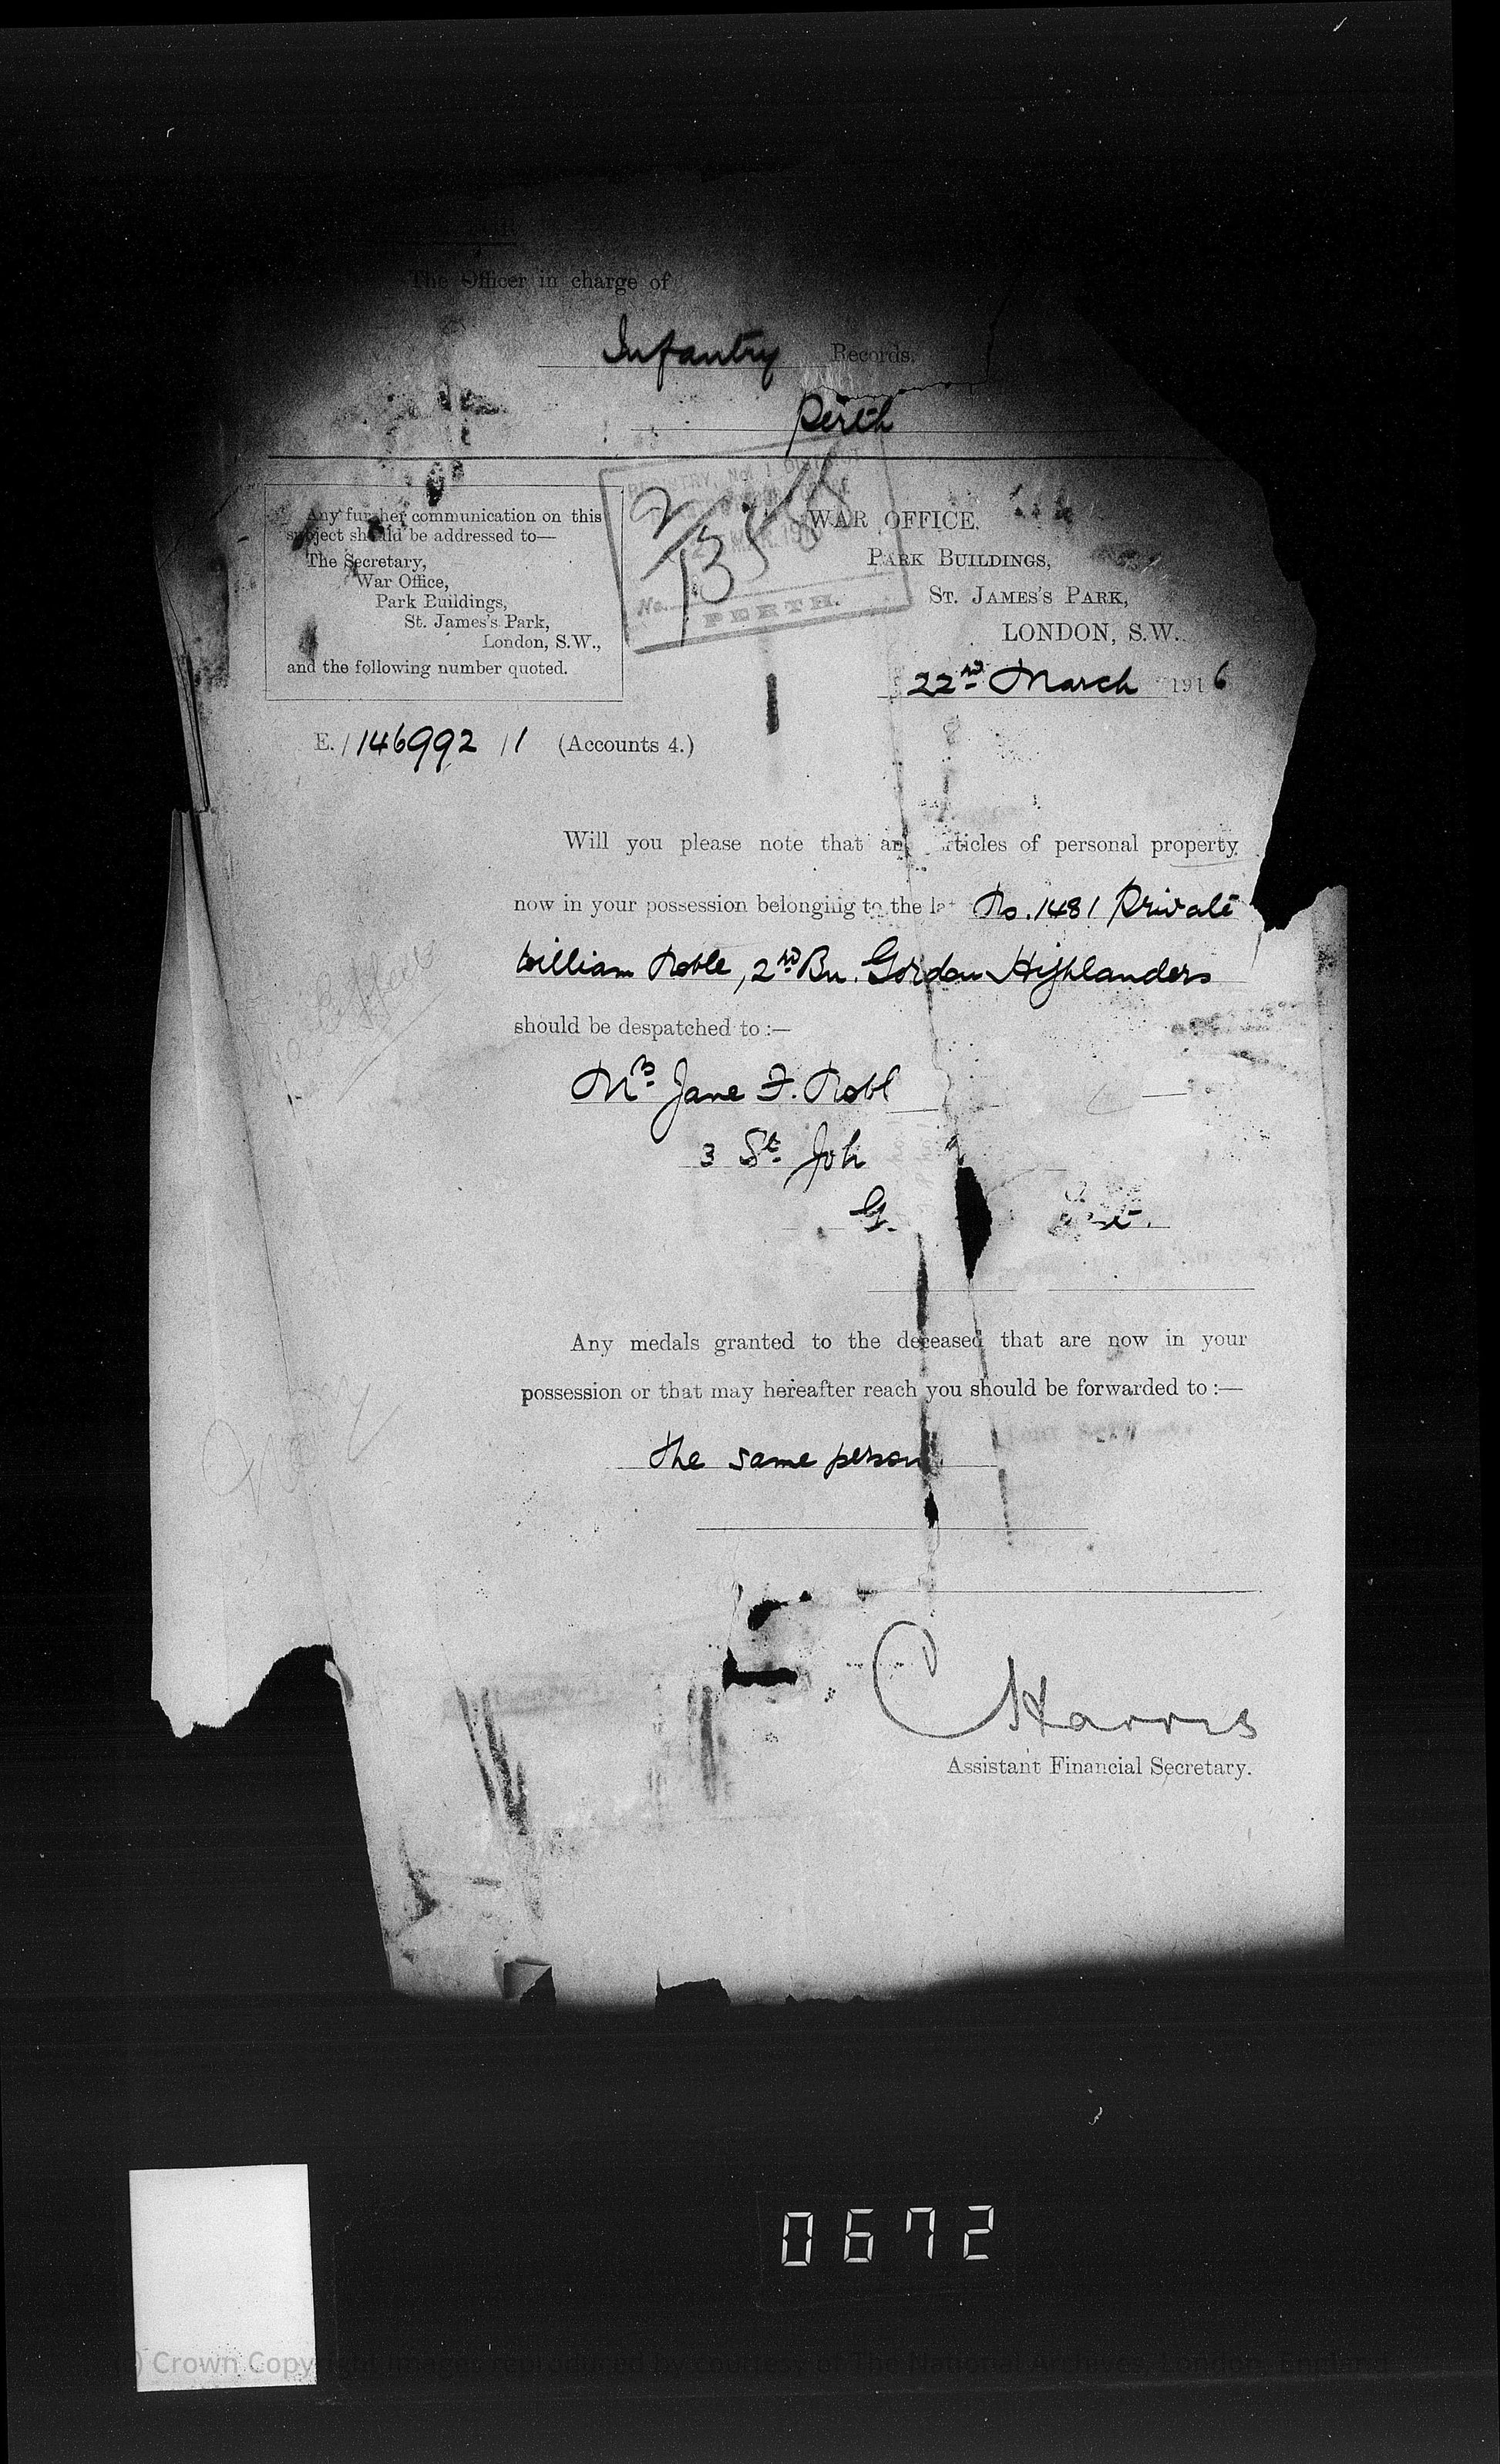 The Officer in charge of
Infantry Records.
Perth
Any further communication on this
subject should be addressed to—
The Secretary,
War Office,
Park Buildings,
St. James's Park,
London, S.W.,
and the following number quoted.
INFANTRY, No. 1 DISTRICT
MAR. 19
2/13588
No.
PERTH.
WAR OFFICE,
PARK BUILDINGS,
ST. JAMES'S PARK,
LONDON, S.W.
22nd March 1916
E. / 146992 / 1 (Accounts 4.)
Will you please note that articles of personal property
now in your possession belonging to the lat No. 1481 Private
William Noble, 2nd Bn. Gordon Highlanders
should be despatched to :—
Mrs Jane F. Nobl
3 St. Joh
G.
Any medals granted to the deceased that are now in your
possession or that may hereafter reach you should be forwarded to :—
the same person
C Harris
Assistant Financial Secretary.
0672
(c) Crown Copyright Images reproduced by courtesy of The National Archives, London, England